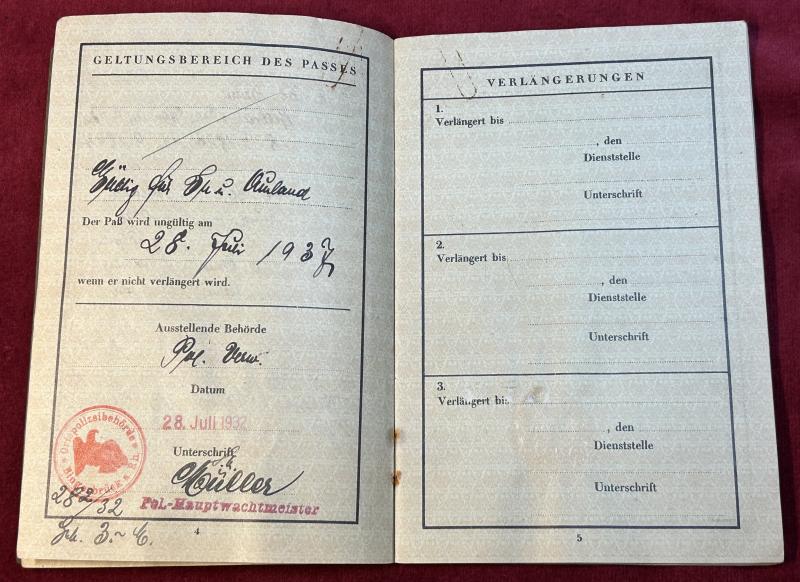 GELTUNGSBEREICH DES PASSES
Gültig für In u. Ausland
Der Paß wird ungültig am
28. Juli 1937
wenn er nicht verlängert wird.
Ausstellende Behörde
Pol. Verw.
Datum
28. Juli 1932
Unterschrift
Müller
Pol.-Hauptwachtmeister
Ortspolizeibehörde
282/32
Geb. 3.-
4
VERLÄNGERUNGEN
1.
Verlängert bis
, den
Dienststelle
Unterschrift
2.
Verlängert bis
, den
Dienststelle
Unterschrift
3.
Verlängert bis
, den
Dienststelle
Unterschrift
5